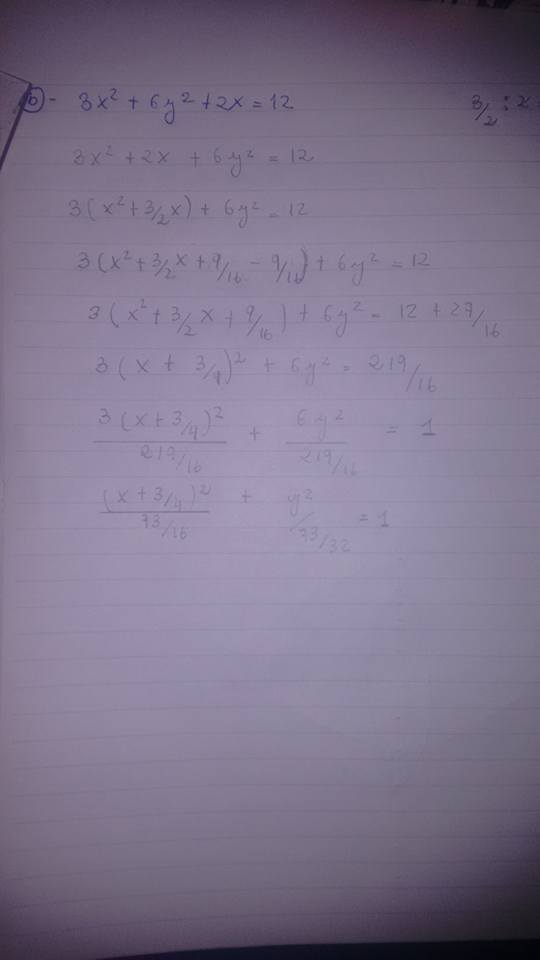 b) - 3x² + 6y² + 2x = 12
3/2 : 2
3x² + 2x + 6y² = 12
3(x² + 3/2x) + 6y² = 12
3(x² + 3/2x + 9/16 - 9/16) + 6y² = 12
3(x² + 3/2x + 9/16) + 6y² = 12 + 27/16
3(x + 3/4)² + 6y² = 219/16
3(x + 3/4)² / 219/16 + 6y² / 219/16 = 1
(x + 3/4)² / 73/16 + y² / 73/32 = 1